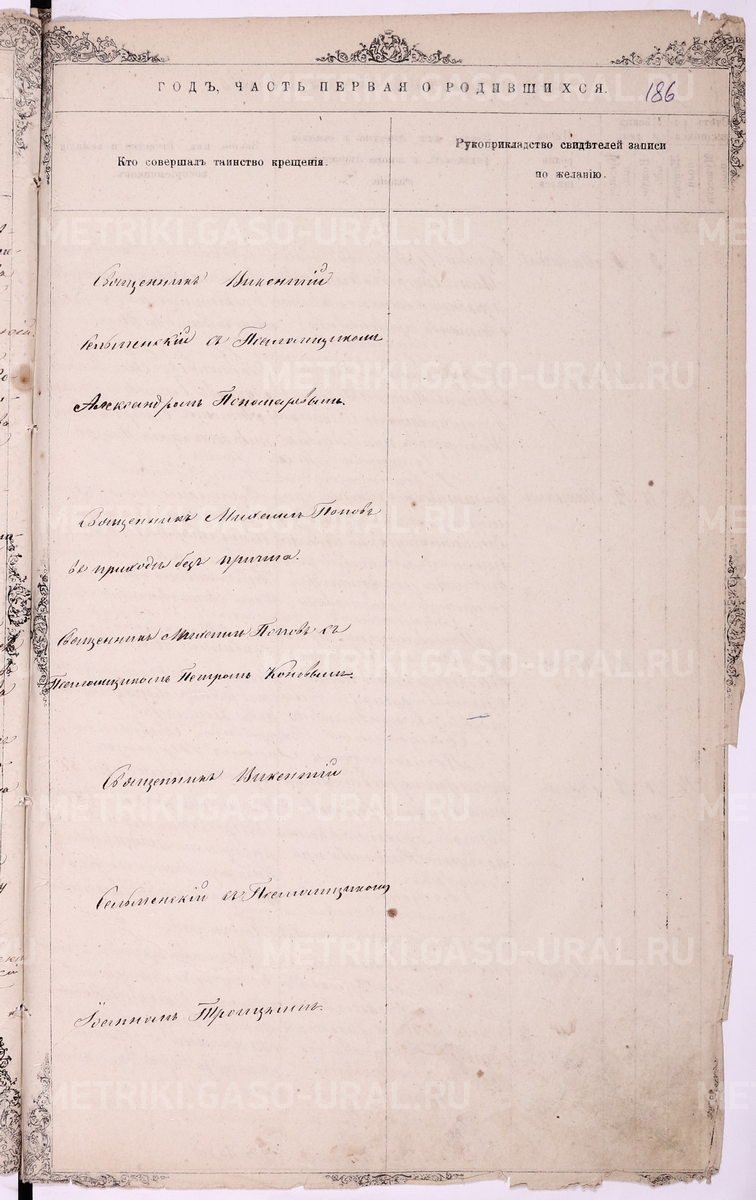 ГОДЪ, ЧАСТЬ ПЕРВАЯ О РОДИВШИХСЯ.
186
Кто совершалъ таинство крещенія.
Рукоприкладство свидѣтелей записи
по желанію.
Священникъ Викентій
съ Псаломщикомъ
Александромъ Пономаревымъ.
Священникъ Михаилъ Поповъ
въ приходѣ безъ причта.
Священникъ Михаилъ Поповъ съ
Псаломщикомъ Петромъ Коновымъ.
Священникъ Викентій
съ Псаломщикомъ
Іоанномъ Троицкимъ.
METRIKI.GASO-URAL.RU